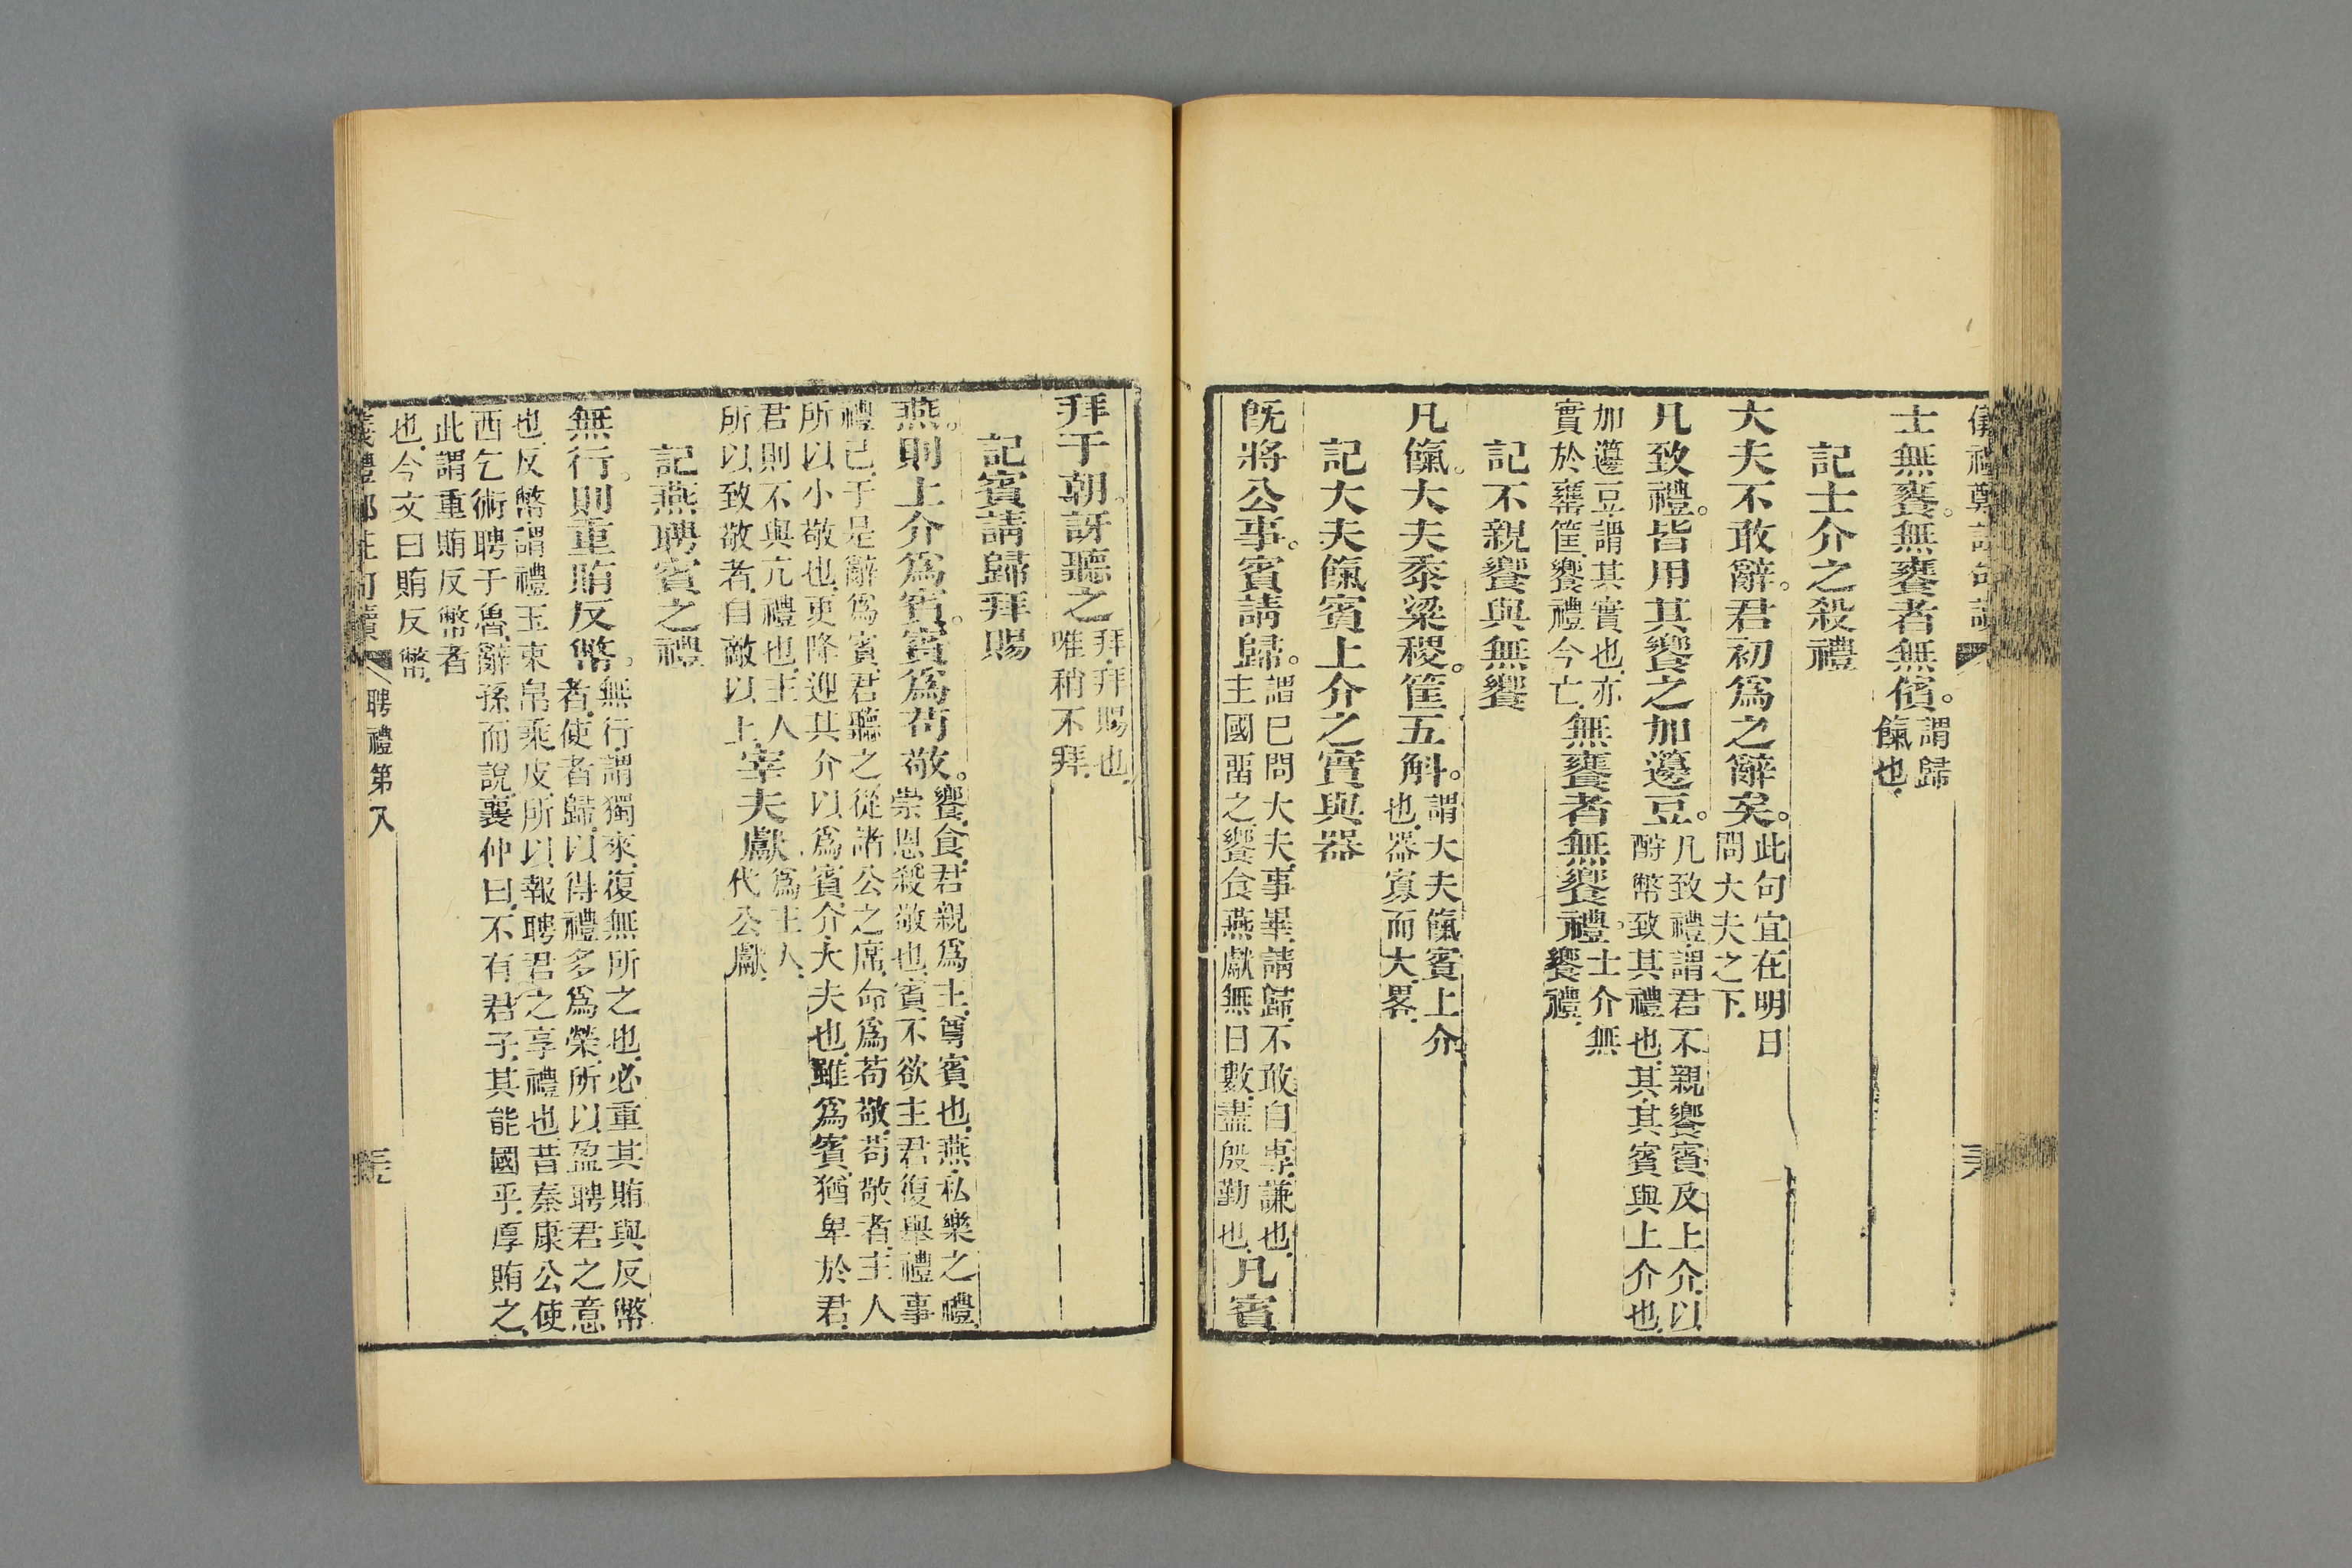 士無饔。無饔者無儐。謂歸
餼也、
記士介之殺禮
大夫不敢辭。君初爲之辭矣。此句宜在明日
問大夫之下、
凡致禮。皆用其饗之加籩豆。凡致禮、謂君不親饗賓及上介、以
酬幣致其禮也、其、其賓與上介也、
加籩豆、謂其實也、亦
實於罋筐、饗禮今亡、無饔者無饗禮。士介無
饗禮、
記不親饗與無饗
凡餼。大夫黍粱稷。筐五斛。謂大夫餼賓上介
也、器寡而大、畧、
記大夫餼賓上介之實與器
旣將公事。賓請歸。謂已問大夫、事畢、請歸、不敢自專、謙也、
主國畱之、饗食燕獻無日數、盡殷勤也、凡賓
拜于朝。訝聽之拜、拜賜也、
唯稍不拜、
記賓請歸拜賜
燕。則上介爲賓。賓爲苟敬。饗食、君親爲主、尊賓也、燕、私樂之禮、
崇恩殺敬也、賓不欲主君復舉禮事
禮己、于是辭爲賓、君聽之、從諸公之席、命爲苟敬、苟敬者、主人
所以小敬也、更降迎其介以爲賓、介、大夫也、雖爲賓、猶卑於君、
君則不與亢禮也、主人
所以致敬者、自敵以上、宰夫獻、爲主人、
代公獻、
記燕聘賓之禮
無行。則重賄反幣。無行、謂獨來、復無所之也、必重其賄與反幣
者、使者歸、以得禮多爲榮、所以盈聘君之意
也、反幣、謂禮玉束帛乘皮、所以報聘君之享禮也、昔秦康公使
西乞術聘于魯、辭孫而說、襄仲曰、不有君子、其能國乎、厚賄之、
此謂重賄反幣者
也、今文曰賄反幣、
聘禮第八